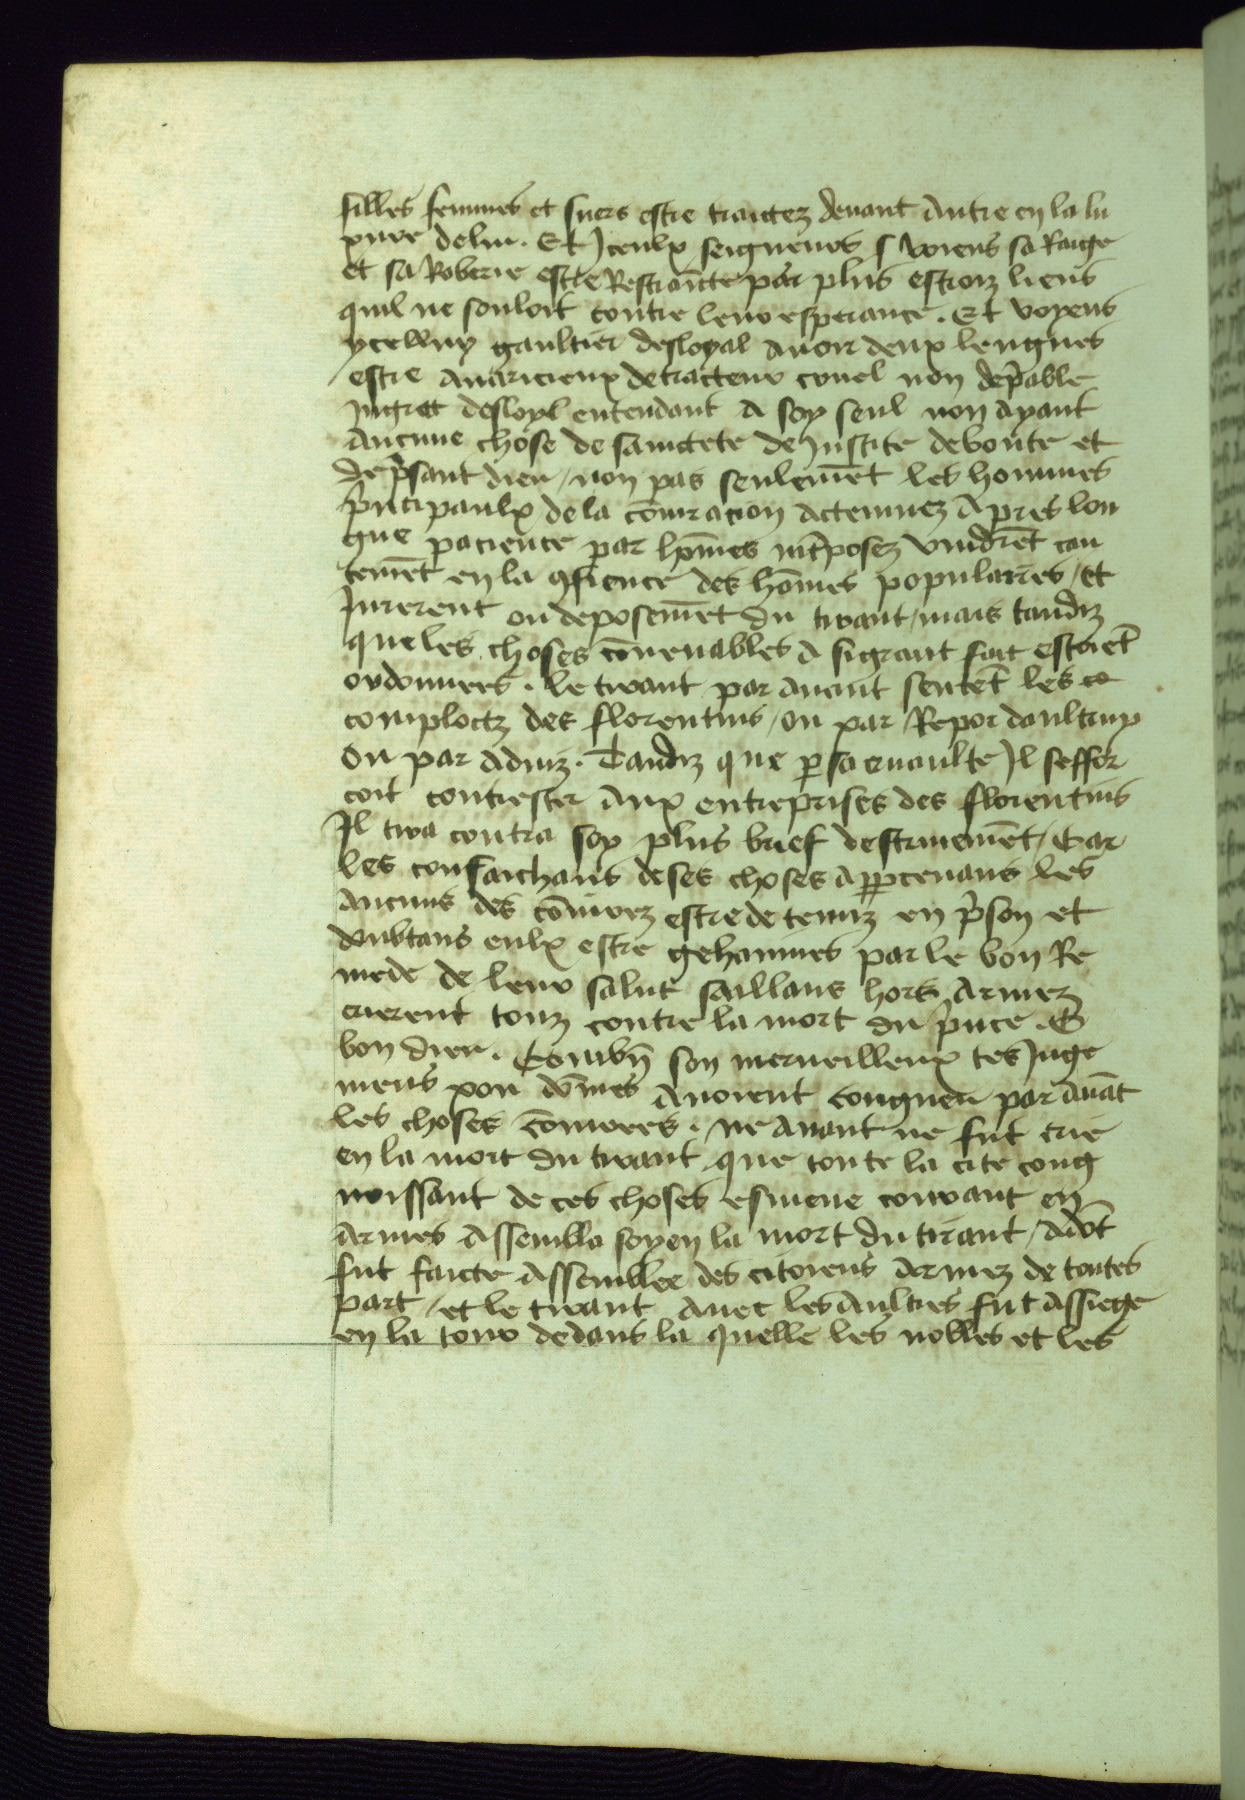 filles femmes et suers estre traictez deuant autre en la lu
xure de luy . Et Iceulx seigneurs voiens sa Raige
et sa Roberie estre Restraincte par plus estrois liens
quil ne souloit contre leur esperance . Et voyens
ycelluy gaultier desloyal auoir deux lengues
estre auaricieux detracteur cruel non
Ingrat desloyl entendant a soy seul non ayant
aucune chose de sainctete de Iustice de bonte et
desp̃sant dieu / non pas seulemẽt les hommes
p̃ncipaulx de la coniracion actennez Apres lon
gue pacience par hõmes int̃posez vindrẽt cau
temẽt en la ꝯfience des hõmes populaires / et
Iurerent ou deposemẽt du tirant / mais tandiz
que les choses cõuenables a si grant fait estoiẽt
ordonnees . le tirant par auant sentẽt les co
comploctz des florentins / ou par Repor daultruy
ou par aduiz . Tandiz que ꝑ sa cruaulte Il seffor
coit contrester aux entreprises des florentins
Il tira contra soy plus brief destruiemẽt / Car
les consaichans de ses choses appcenans les
aucuns des cõiurez estre de tenuz en p̃son et
doubtans eulx estre gehannes par le bon Re
mede de leur salut saillans hors armez
crierent touz contre la mort du p̃nce . O
bon dieu . Combñ son merueilleux tes Iuge
mens pou dõmes auoient congneu par auãt
les choses cõiurees . ne auant ne fut crie
en la mort du tirant que toute la cite cong
noissant de ces choses esmeue courant en
armes assembla soy en la mort du tirant / adõt
fut faicte assemblee des citoiens armez de toutes
part / et le tirant auec les aultres fut assiege
en la tour dedans la quelle les nobles et les